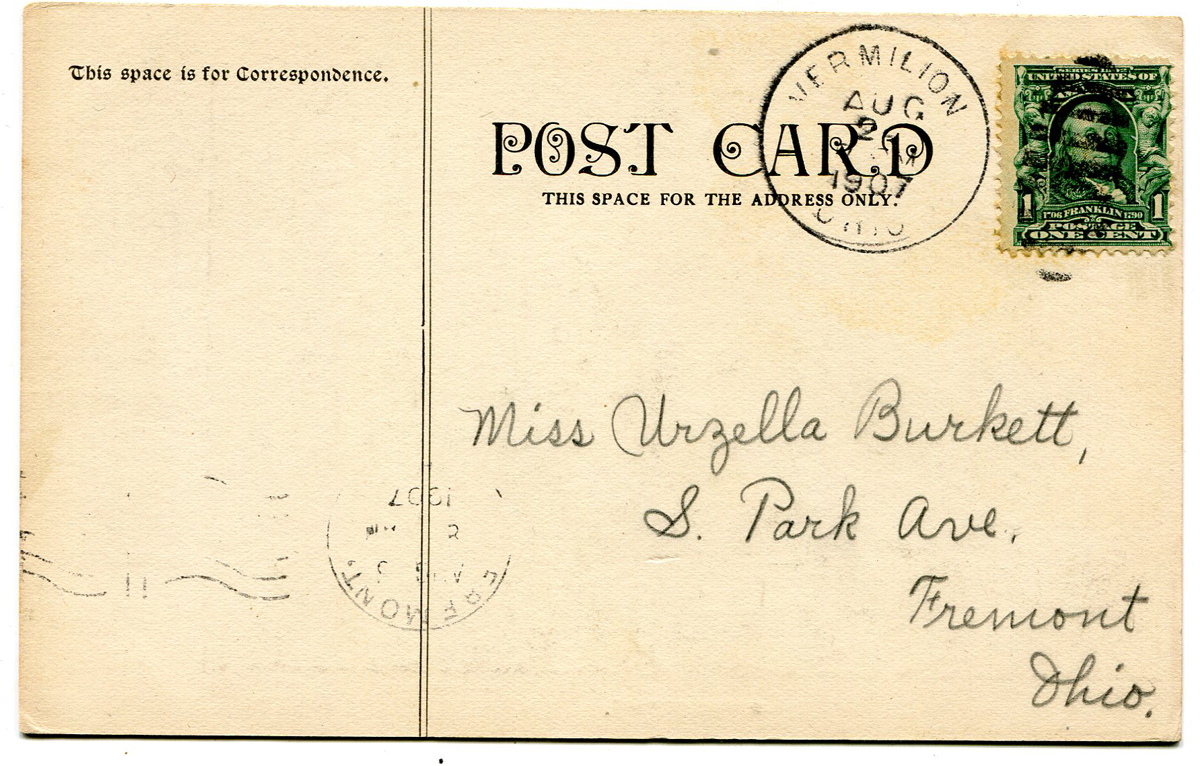 This space is for Correspondence.
POST CARD
THIS SPACE FOR THE ADDRESS ONLY.
VERMILION
AUG
2
M
1907
OHIO
SERIES 1902
UNITED STATES OF
AMERICA
1 1706 FRANKLIN 1790 1
POSTAGE
ONE CENT
Miss Urzella Burkett,
S. Park Ave.
Fremont
Ohio.
1907
2
FREMONT.